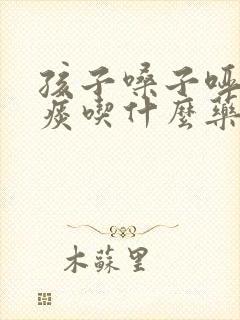 孩子嗓子哑
痰喫什麼藥
木蘇里